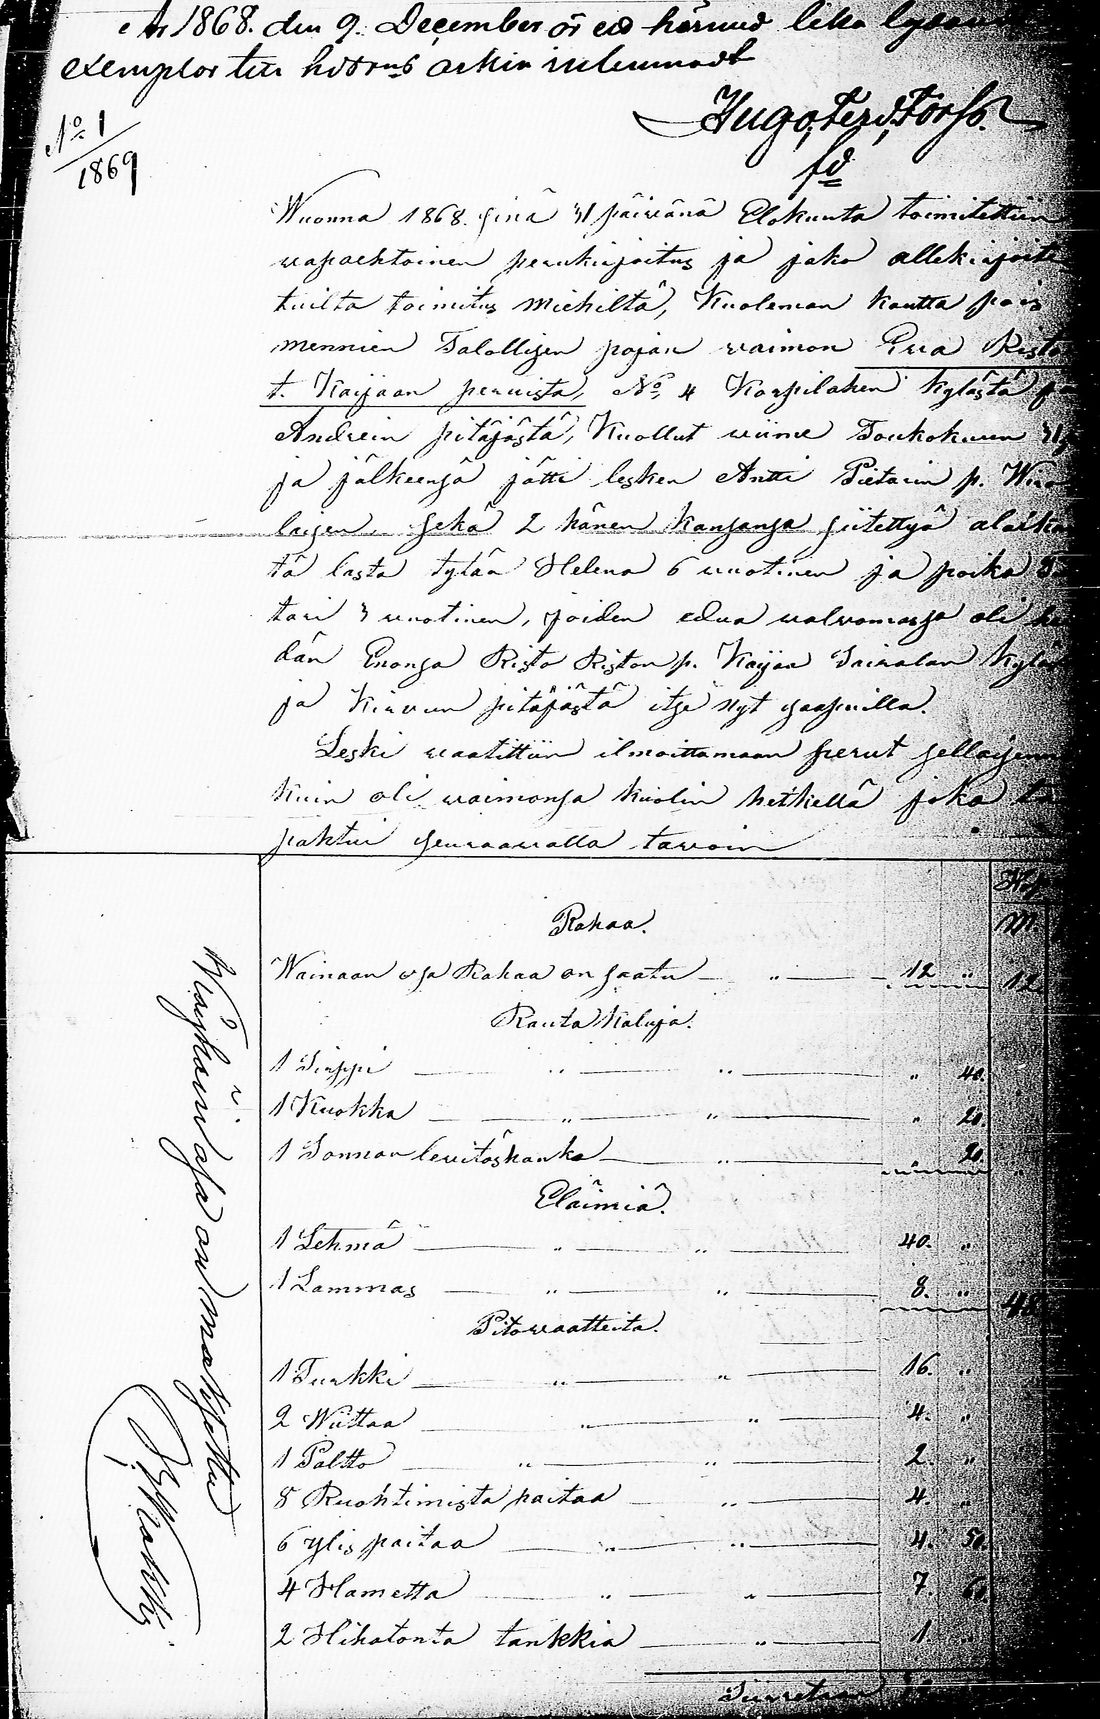 År 1868. den 9. December är ett härmed lika lydande
exemplar till härads arkiv inlemnadt
Hugo, Ferd, Forss.
fd
No 1
1869
Wuonna 1868. sinä 31 päivänä Elokuuta toimitettiin
wapaehtoinen perukirjoitus ja jako allekirjoite
tuilta toimitus miehiltä, Kuoleman kautta pois
mennien Talollisen pojan waimon Ewa Risto
t. Kaijaan perustta, No 4 Korpilahen kylästä
Andrein pitäjästä, Kuollut wiime Toukokuun 31
ja jälkeensä jätti lesken Antti Pietarin p. Wiro
laisen, sekä 2 hänen kanssansa siitettyä alaikä
tä lasta tytär Helena 6 wuotinen ja poika
tari 3 wuotinen, joiden edua walwomassa oli hei
dän Enonsa Risto Riston p. Kaijan Sairalan kylä
ja Kirwun pitäjästä itse nyt saapuilla.
Leski waatittiin ilmoittamaan perut sellaisena
kuin oli waimonsa kuolin hetkellä joka ta
pahtui seuraawalla tawoin
M.
Rahaa.
Wainaan osa Rahaa on saatu — „ — 12 „ 12
Rauta Kaluja.
1 Sirppi — „ — „ — „ 40.
1 Kuokka — „ — „ — „ 20.
1 Sonnan lewitöshanko — „ — „ 20.
Eläimiä.
1 Lehmä — „ — „ — 40. „
1 Lammas — „ — „ — 8. „ 48
Pitowaatteita.
1 Turkki — „ — „ — 16. „
2 Wiittaa — „ — „ — 4. „
1 Paltto — „ — „ — 2. „
8 Ruohtimista paitaa — „ — 4. „
6 ylis paitaa — „ — „ — 4. 50.
4 Hametta — „ — „ — 7. 60.
2 Hihatonta tankkia — „ — 1. „
Siirretään
Waiyhaiwaisa on maksettu